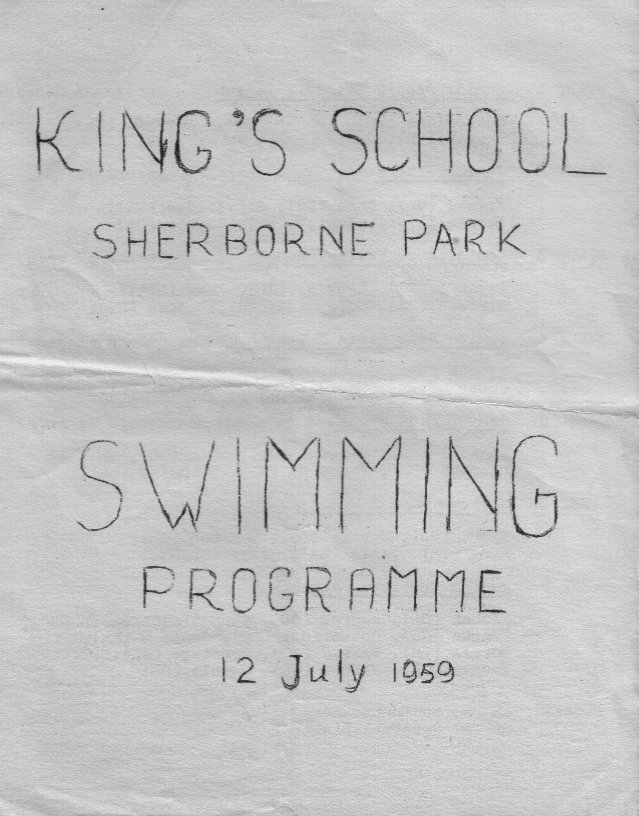 KING'S SCHOOL
SHERBORNE PARK
SWIMMING
PROGRAMME
12 July 1959